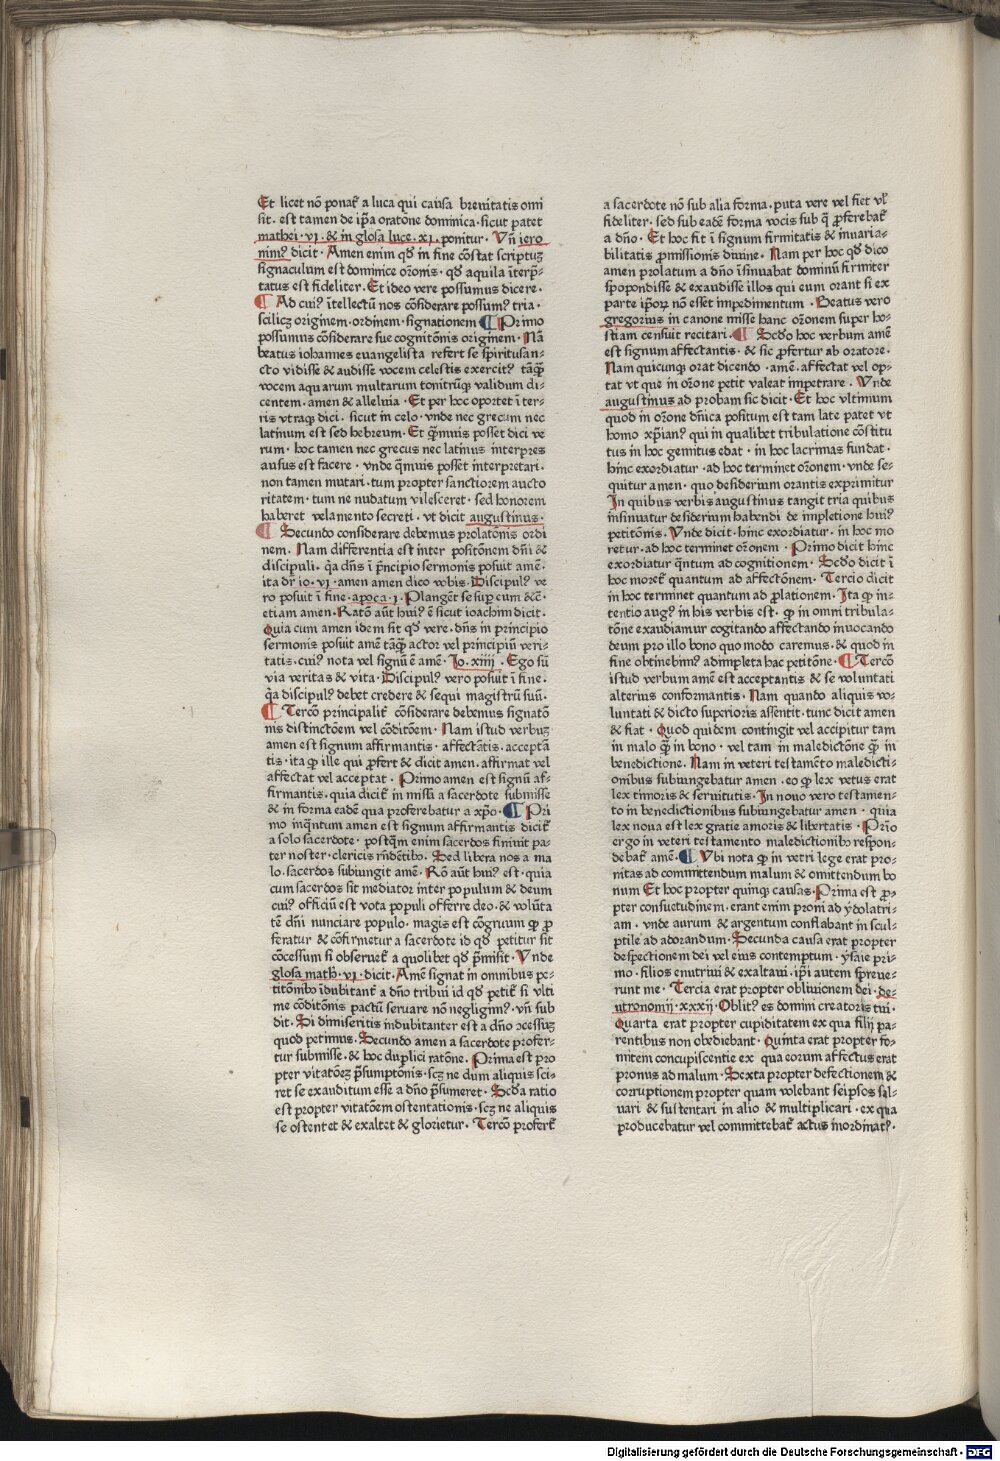 Et licet nō ponat᷑ a luca qui causa breuitatis omi
sit. est tamen de ip̄a oratōne dominica. sicut patet
mathei · vj. & in glosa luce. xj. ponitur · Vn̄ iero
nimꝰ dicit · Amen enim qđ in fine cōstat scriptuȝ
signaculum est dominice or̄onis · qđ aquila īterp̄-
tatus est fideliter. Et ideo vere possumus dicere.
¶ Ad cuiꝰ ītellectū nos cōsiderare possumꝰ tria ·
scilicȝ originem · ordinem · signationem ¶ Primo
possumus cōsiderare sue cognitōnis originem · Nā
beatus iohannes euangelista refert se spiritusan-
cto vidisse & audisse vocem celestis exercitꝰ tāq̄ȝ
vocem aquarum multarum tonitruūq validum di-
centem. amen & alleluia · Et per hoc oportet ī ter-
ris vtraqȝ dici. sicut in celo · vnde nec grecum nec
latinum est sed hebreum · Et q̄muis posset dici ve
rum · hoc tamen nec grecus nec latinus interpres
ausus est facere · vnde q̄muis posset interpretari.
non tamen mutari. tum propter sanctiorem aucto
ritatem · tum ne nudatum vilesceret · sed honorem
haberet velamento secreti. vt dicit augustinus ·
¶ Secundo considerare debemus prolatōnis ordi
nem. Nam differentia est inter positōnem dn̄i &
discipuli. q̄a dn̄s ī p̄ncipio sermonis posuit amē.
ita dr̄ io. vj. amen amen dico vobis. Discipulꝰ ve
ro posuit ī fine · apoca. j. Plangēt se suꝑ eum &cē ·
etiam amen. Ratō aūt huiꝰ ē sicut ioachim dicit.
Quia cum amen idem sit qđ vere. dn̄s in principio
sermonis posuit amē tāq̄ȝ actor vel principiū veri-
tatis. cuiꝰ nota vel signū ē amē · Io. xiiij · Ego sū
via veritas & vita · Discipulꝰ vero posuit ī fine.
q̄a discipulꝰ debet credere & sequi magistrū suū.
¶ Tercō principalit᷑ cōsiderare debemus signatō
nis distinctōem vel cōditōem · Nam istud verbuȝ
amen est signum affirmantis · affectātis. acceptā
tis · ita ꝙ ille qui ꝓfert & dicit amen. affirmat vel
affectat vel acceptat · Primo amen est signū af-
firmantis. quia dicit᷑ in missa a sacerdote submisse
& in forma eadē qua proferebatur a xp̄o · ¶ Pri
mo inq̄ntum amen est signum affirmantis dicit᷑
a solo sacerdote · postq̄m enim sacerdos finiuit pa-
ter noster · clericis rn̄dētibȝ. Sed libera nos a ma
lo. sacerdos subiungit amē · Rō aūt huiꝰ est · quia
cum sacerdos sit mediator inter populum & deum
cuiꝰ officiū est vota populi offerre deo. & volūta
tē dn̄i nunciare populo. magis est cōgruum ꝙ ꝓ
feratur & cōfirmetur a sacerdote id qđ petitur sit
cōcessum si obseruet᷑ a quolibet qđ p̄misit · Vnde
glosa math̄. vj. dicit. Amē signat in omnibus pe-
titōnibȝ īdubitant᷑ a dn̄o tribui id qđ petit᷑ si vlti
me cōditōnis pactū seruare nō negligimꝰ. vn̄ sub
dit. Si dimiseritis indubitanter est a dn̄o ɔcessuȝ
quod petimus. Secundo amen a sacerdote profer-
tur submisse. & hoc duplici ratōne. Prima est pro
pter vitatōeȝ p̄sumptōnis · scȝ ne dum aliquis sci-
ret se exauditum esse a dn̄o p̄sumeret · Scđa ratio
est propter vitatōem ostentationis · scȝ ne aliquis
se ostentet & exaltet & glorietur · Tercō profert᷑
a sacerdote nō sub alia forma. puta vere vel fiet vl̄
fideliter. sed sub eadē forma vocis sub q̄ ꝓferebat᷑
a dn̄o. Et hoc fit ī signum firmitatis & inuaria-
bilitatis ꝓmissionis diuine. Nam per hoc qđ dico
amen prolatum a dn̄o īsinuabat dominū firmiter
spopondisse & exaudisse illos qui eum orant si ex
parte ip̄oꝝ nō esset impedimentum · Beatus vero
gregorius in canone misse hanc or̄onem super ho-
stiam censuit recitari. ¶ Scđo hoc verbum amē
est signum affectantis · & sic ꝓfertur ab oratore.
Nam quicunqȝ orat dicendo · amē. affectat vel op-
tat vt que in or̄one petit valeat impetrare. Vnde
augustinus ad probam sic dicit · Et hoc vltimum
quod in or̄one dn̄ica positum est tam late patet vt
homo xp̄ianꝰ qui in qualibet tribulatione cōstitu
tus in hoc gemitus edat · in hoc lacrimas fundat ·
hinc exordiatur · ad hoc terminet or̄onem. vnde se-
quitur amen · quo desiderium orantis exprimitur
In quibus verbis augustinus tangit tria quibus
insinuatur desiderium habendi de impletione huiꝰ
petitōnis. Vnde dicit. hinc exordiatur. in hoc mo
retur. ad hoc terminet or̄onem · Primo dicit hinc
exordiatur q̄ntum ad cognitionem · Scđo dicit ī
hoc moret᷑ quantum ad affectōnem. Tercio dicit
in hoc terminet quantum ad ꝓlationem. Ita ꝙ in-
tentio augꝰ in his verbis est · ꝙ in omni tribula-
tōne exaudiamur cogitando affectando inuocando
deum pro illo bono quo modo caremus. & quod in
fine obtinebimꝰ adimpleta hac petitōne · ¶ Tercō
istud verbum amē est acceptantis & se voluntati
alterius conformantis · Nam quando aliquis vo-
luntati & dicto superioris assentit. tunc dicit amen
& fiat · Quod quidem contingit vel accipitur tam
in malo q̄ȝ in bono · vel tam in maledictōne q̄ȝ in
benedictione. Nam in veteri testamēto maledicti-
onibus subiungebatur amen · eo ꝙ lex vetus erat
lex timoris & seruitutis. In nouo vero testamen-
to in benedictionibus subiungebatur amen · quia
lex noua est lex gratie amoris & libertatis · Prīo
ergo in veteri testamento maledictionibȝ respon-
debat᷑ amē. ¶ Vbi nota ꝙ in vetri lege erat pro-
nitas ad committendum malum & omittendum bo
num Et hoc propter quinqȝ causas. Prima est ꝓ-
pter consuetudinem · erant enim proni ad ydolatri-
am · vnde aurum & argentum conflabant in scul-
ptile ad adorandum. Secunda causa erat propter
despectionem dei vel eius contemptum · ysaie pri-
mo · filios enutriui & exaltaui. ip̄i autem spreue-
runt me · Tercia erat propter obliuionem dei · de-
utronomij · xxxij · Oblitꝰ es domini creatoris tui.
Quarta erat propter cupiditatem ex qua filij pa-
rentibus non obediebant · Quinta erat propter fo-
mitem concupiscentie ex qua eorum affectus erat
pronus ad malum · Sexta propter defectionem &
corruptionem propter quam volebant seipsos sal-
uari & sustentari in alio & multiplicari · ex qua
producebatur vel committebat᷑ actus inordinatꝰ.
Digitalisierung gefördert durch die Deutsche Forschungsgemeinschaft - DFG